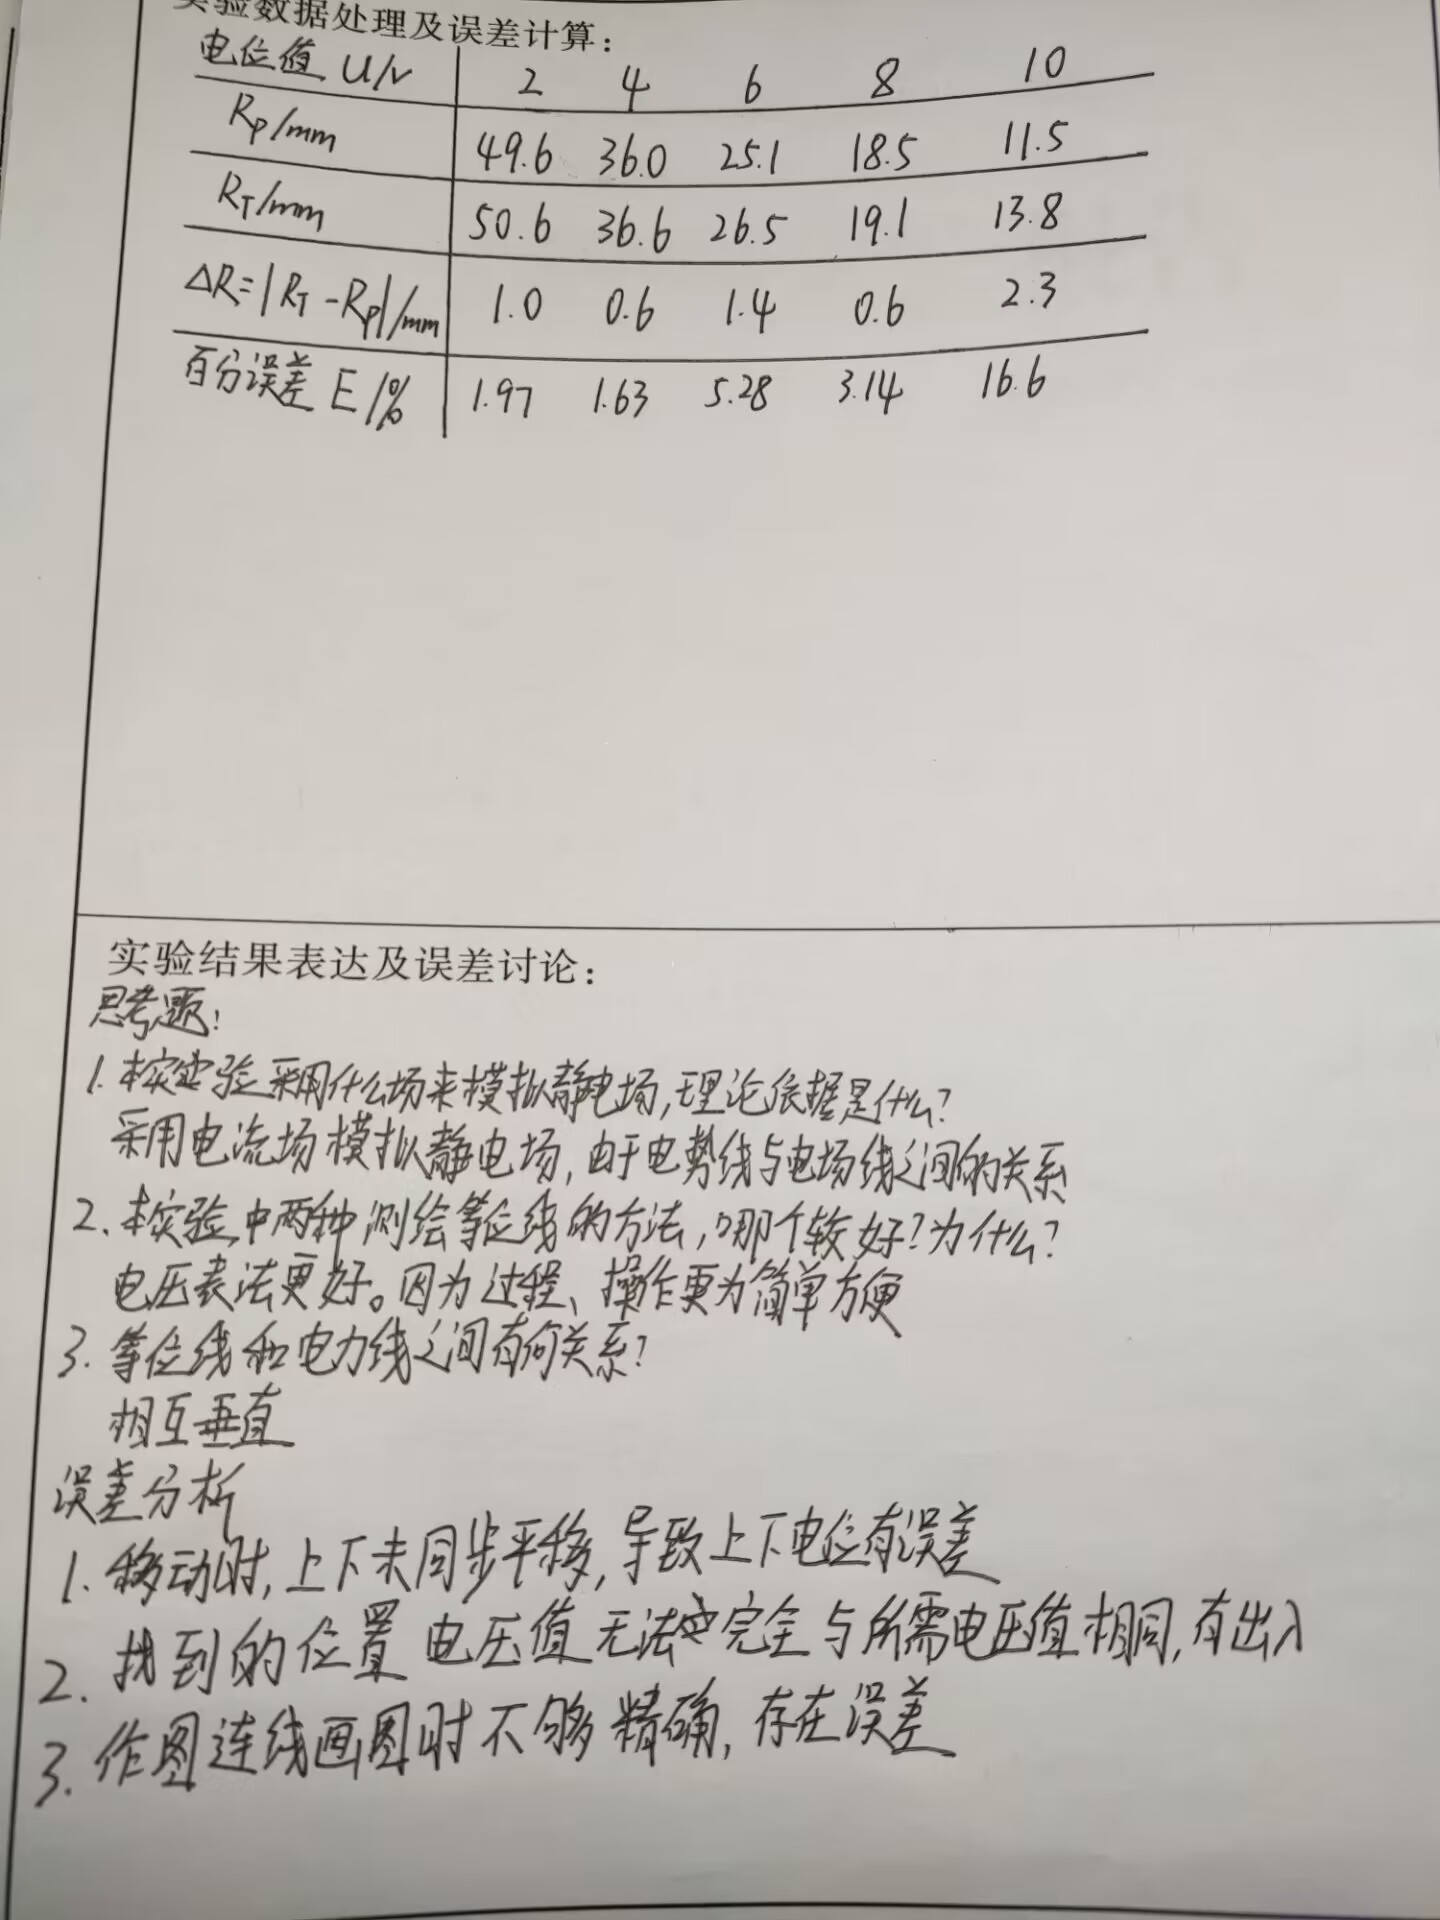 实验数据处理及误差计算:
电位值 U/V 2 4 6 8 10
Rp/mm 49.6 36.0 25.1 18.5 11.5
RT/mm 50.6 36.6 26.5 19.1 13.8
ΔR=|RT-Rp|/mm 1.0 0.6 1.4 0.6 2.3
百分误差 E/% 1.97 1.63 5.28 3.14 16.6
实验结果表达及误差讨论:
思考题:
1. 本实验采用什么场来模拟静电场,理论依据是什么?
采用电流场模拟静电场,由于电势线与电场线之间的关系
2. 本实验中两种测绘等位线的方法,哪个较好?为什么?
电压表法更好。因为过程、操作更为简单方便
3. 等位线和电力线之间有何关系?
相互垂直
误差分析
1. 移动时,上下未同步平移,导致上下电位有误差
2. 找到的位置电压值无法完全与所需电压值相同,有出入
3. 作图连线画图时不够精确,存在误差